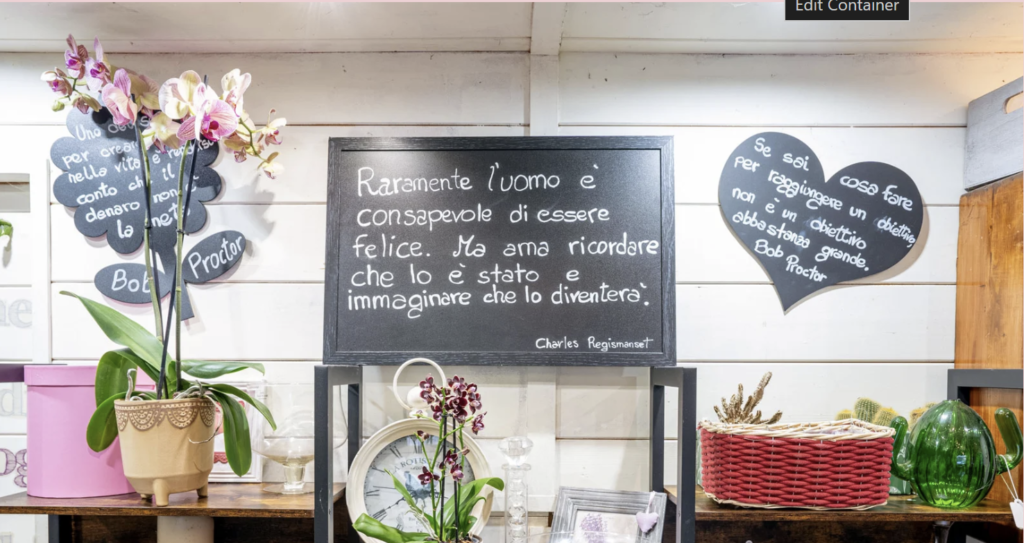 Edit Container
Uno dei
per crear
nella vita è
conto che il
denaro non è
la meta
Bob Proctor
Raramente l'uomo è
consapevole di essere
felice. Ma ama ricordare
che lo è stato e
immaginare che lo diventerà.
Charles Regismanset
Se sai cosa fare
per raggiungere un obiettivo
non è un obiettivo
abbastanza grande.
Bob Proctor